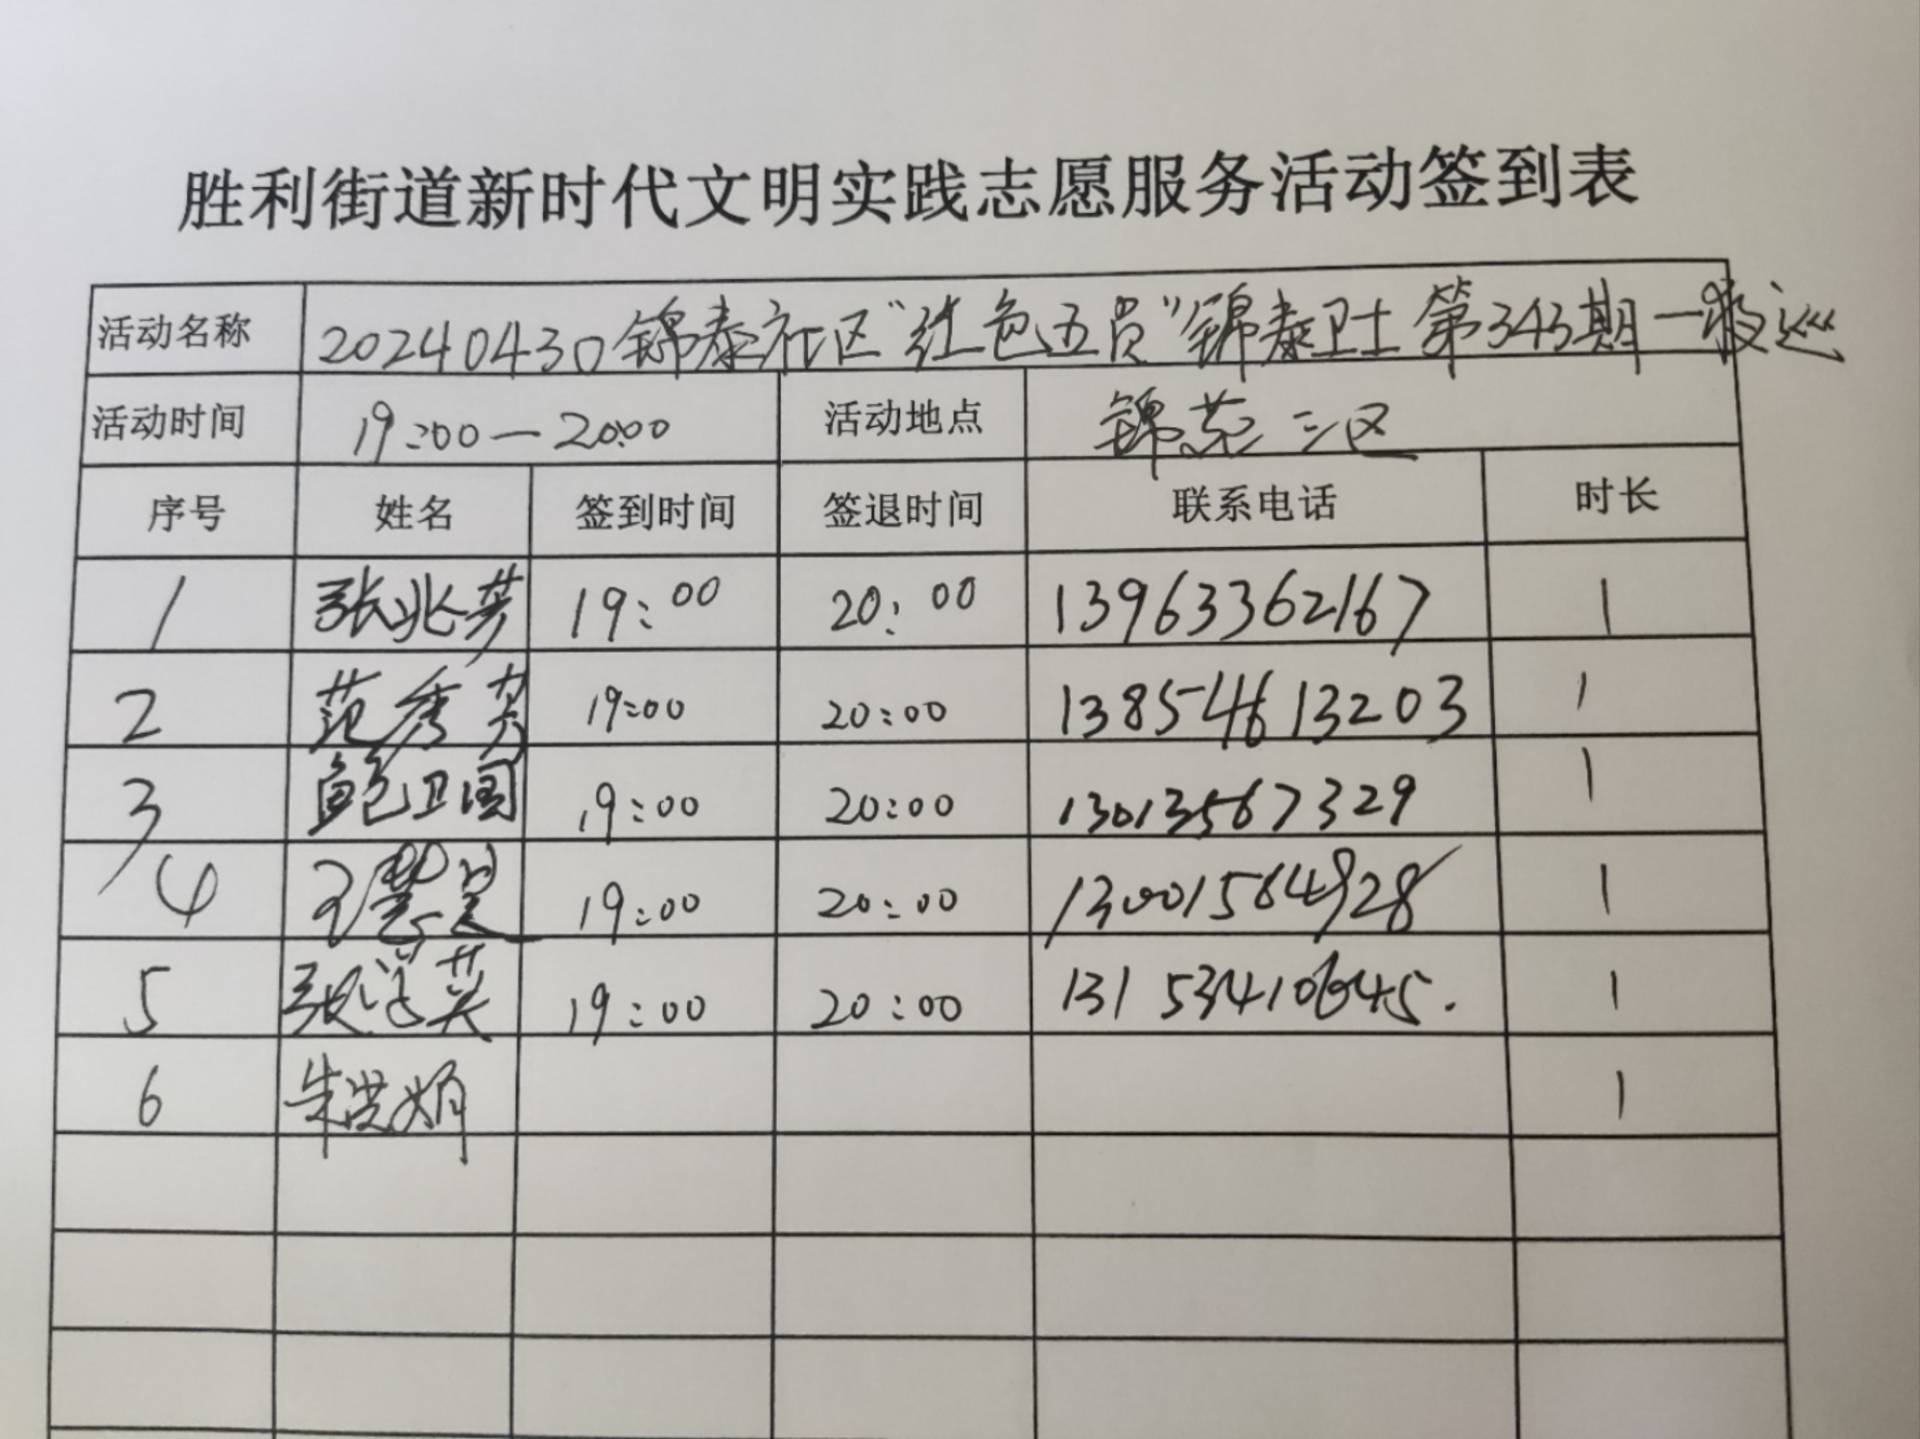 胜利街道新时代文明实践志愿服务活动签到表
活动名称 20240430锦泰社区“红色五员”锦泰卫士第343期—夜巡
活动时间 19:00—20:00 活动地点 锦苑三区
序号 姓名 签到时间 签退时间 联系电话 时长
1 张兆芳 19:00 20:00 13963362167 1
2 范秀芳 19:00 20:00 13854613203 1
3 鲍卫国 19:00 20:00 13013567329 1
4 19:00 20:00 13001564928 1
5 张洪英 19:00 20:00 13153410645. 1
6 朱洪娟 1